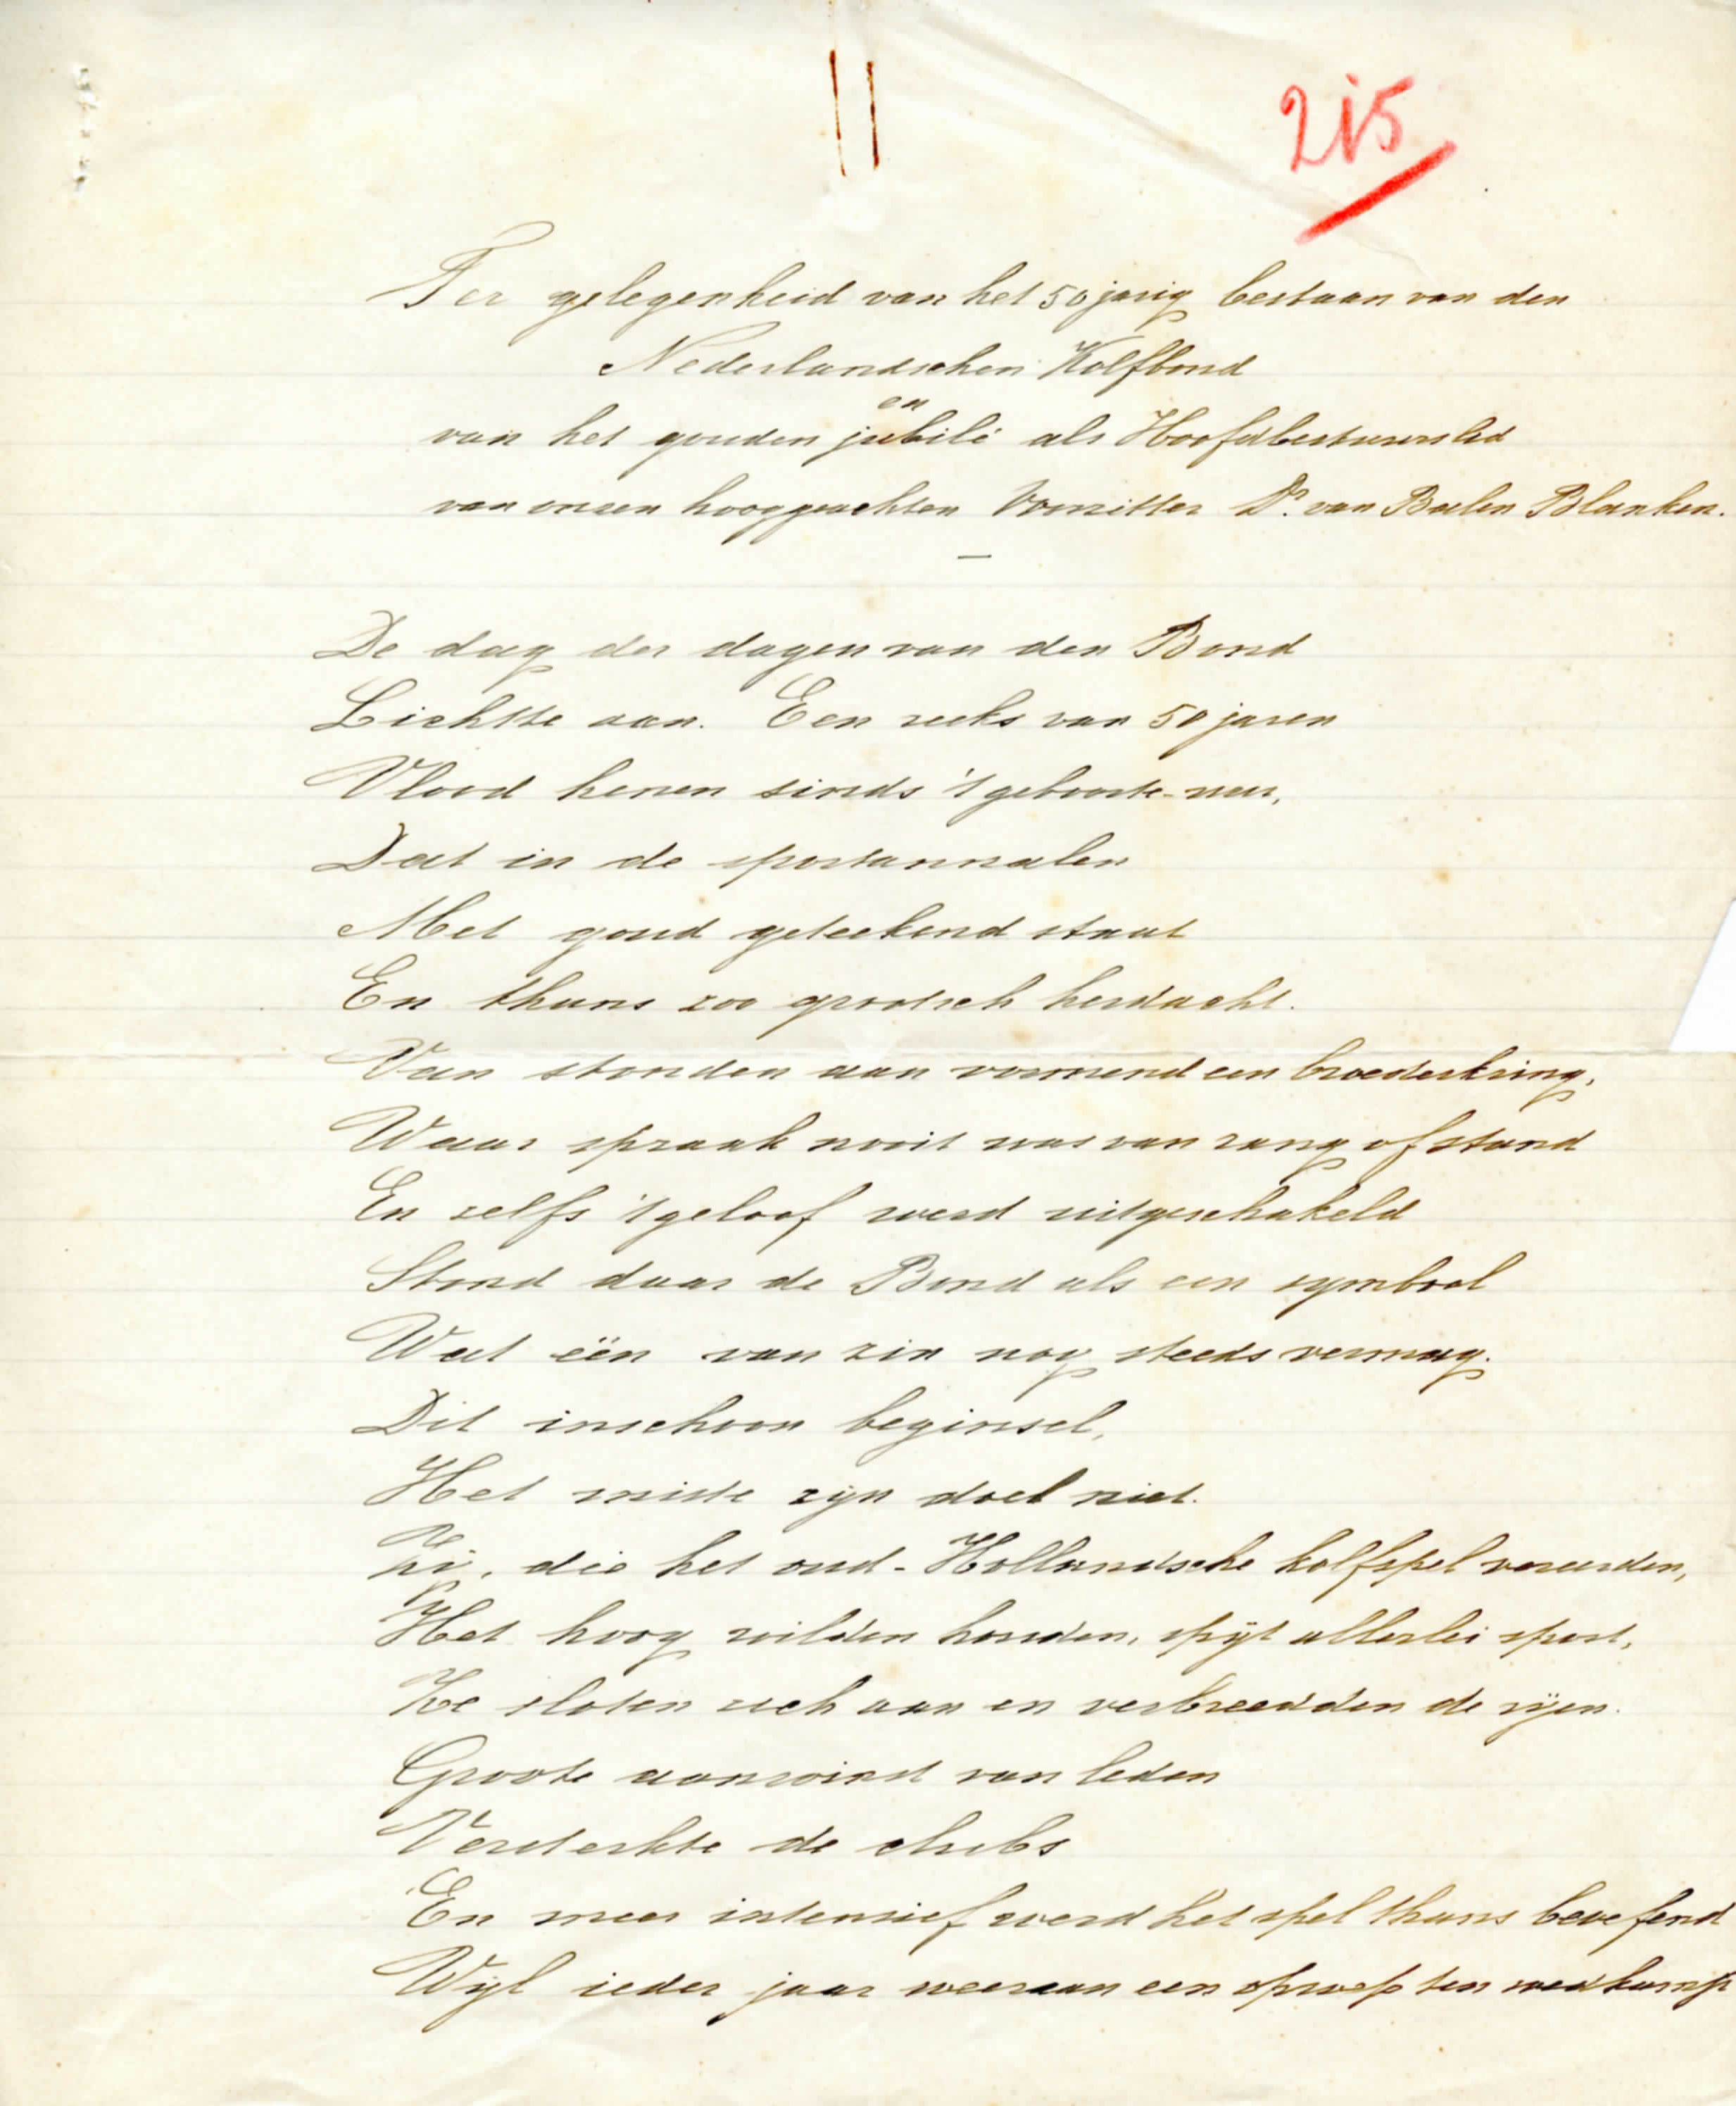 215
Ter gelegenheid van het 50 jarig bestaan van den
Nederlandschen Kolfbond
en
van het gouden jubilé als Hoofdbestuurslid
van onzen hooggeachten Voorzitter Dr. van Balen Blanken.
—
De dag der dagen van den Bond
Lichtte aan. Een reeks van 50 jaren
Vlood henen sinds 't geboorte-uur,
Dat in de sportannalen
Met goud geteekend staat
En thans zoo grootsch herdacht.
Van stonden aan vormend een broederkring,
Waar spraak nooit was van rang of stand
En zelfs 't geloof werd uitgeschakeld
Stond daar de Bond als een symbool
Wat één van zin nog steeds vermag.
Dit inschoon beginsel,
Het miste zijn doel niet.
Zij, die het oud-Hollandsche kolfspel vereerden,
Het hoog wilden houden, spijt allerlei sport,
Ze sloten zich aan en verbreedden de rijen.
Groote aanwinst van leden
Versterkte de clubs
En meer intensief werd het spel thans beoefend
Wijl ieder jaar weeraan een oproep ten wedkamp